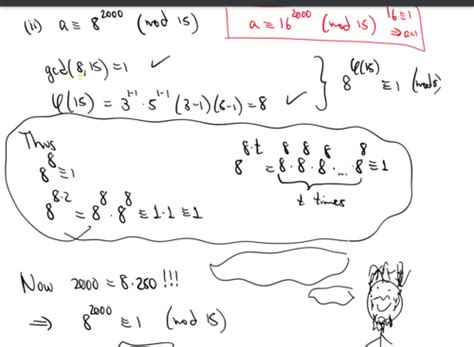 (ii) a ≡ 8^2000 (mod 15)
a ≡ 16^2000 (mod 15) 16≡1 ⇒ a≡1
gcd(8,15)=1 ✓
φ(15) = 3^1-1 · 5^1-1 (3-1)(5-1) = 8 ✓
} 8^φ(15) ≡ 1 (mod 15)
Thus
8^8 ≡ 1
8^8·2 = 8^8 · 8^8 ≡ 1·1 ≡ 1
8^8·t = 8^8 · 8^8 · 8^8 · ... · 8^8 ≡ 1
t times
Now 2000 = 8·250 !!!
⇒ 8^2000 ≡ 1 (mod 15)